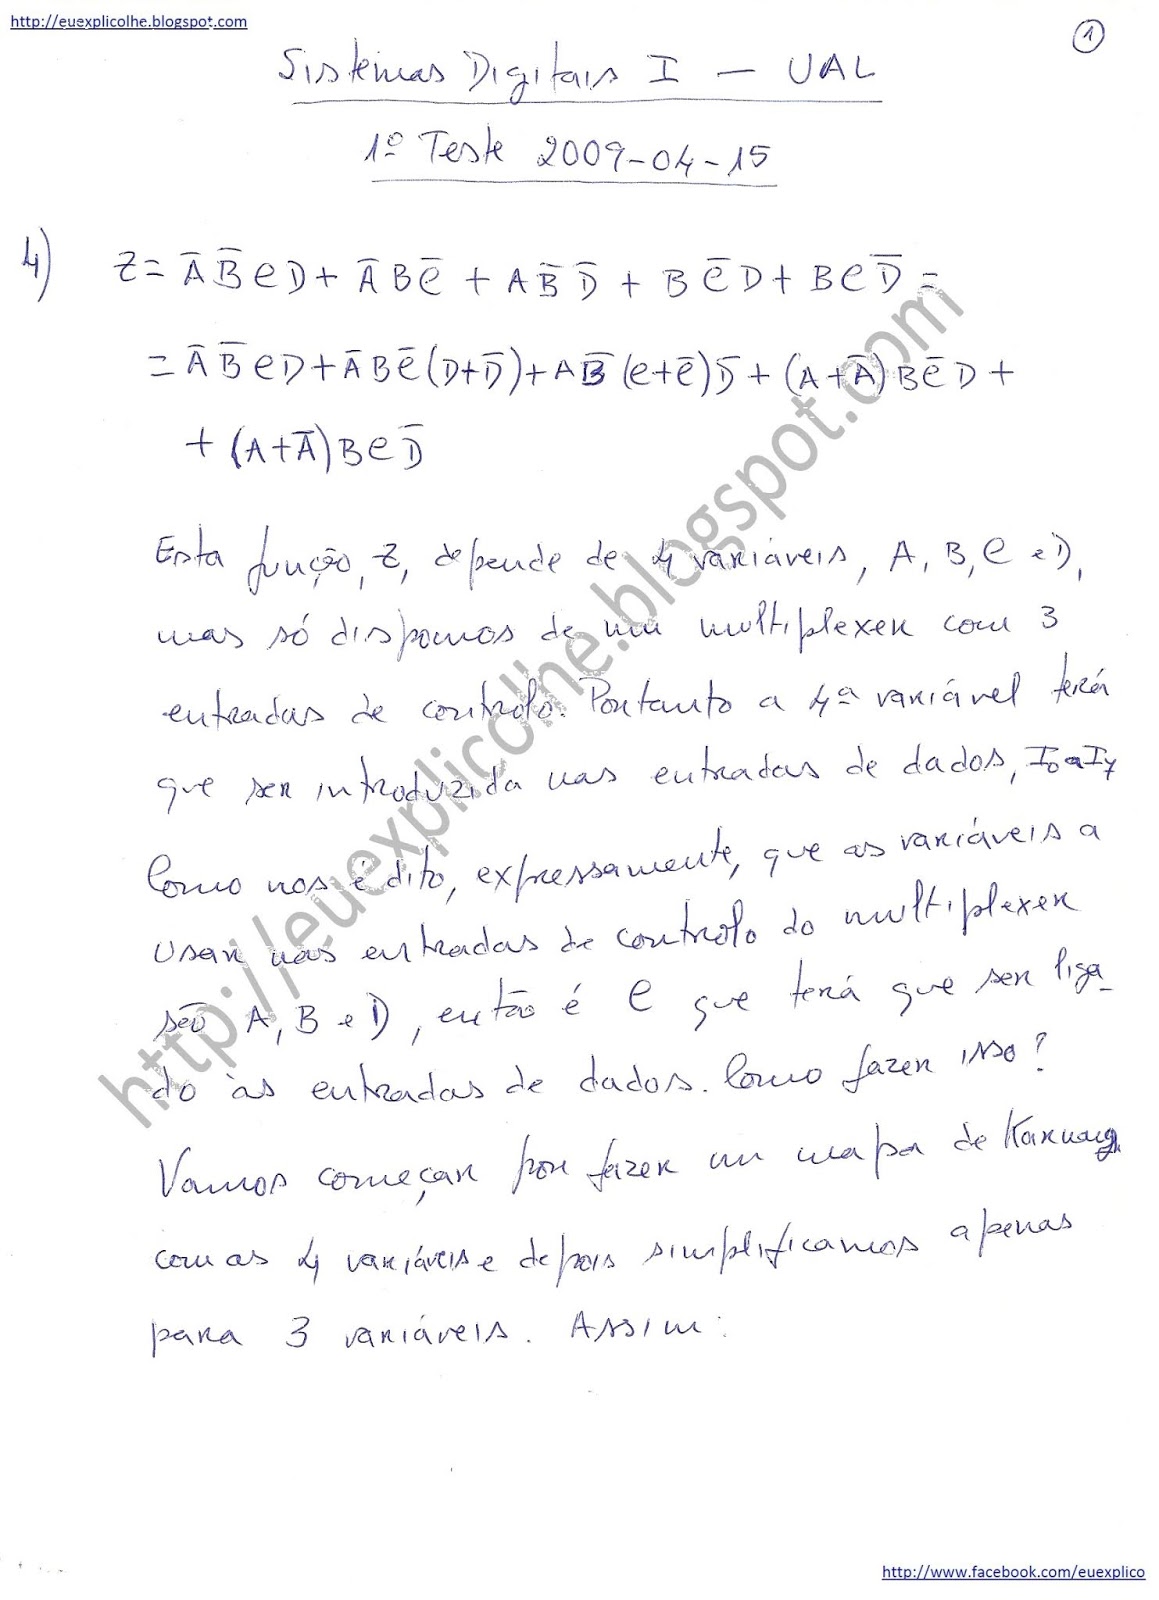 http://euexplicolhe.blogspot.com
1
Sistemas Digitais I — UAL
1º Teste 2009-04-15
4) Z = A̅ B̅ C D + A̅ B C̅ + A B̅ D̅ + B C̅ D + B C D̅ =
= A̅ B̅ C D + A̅ B C̅ (D + D̅) + A B̅ (C + C̅) D̅ + (A + A̅) B C̅ D +
+ (A + A̅) B C D̅
Esta função, Z, depende de 4 variáveis, A, B, C e D,
mas só dispomos de um multiplexer com 3
entradas de controlo. Portanto a 4ª variável terá
que ser introduzida nas entradas de dados, I0 a I7
Como nos é dito, expressamente, que as variáveis a
usar nas entradas de controlo do multiplexer
são A, B e D, então é C que terá que ser liga-
do às entradas de dados. Como fazer isso?
Vamos começar por fazer um mapa de Karnaugh
com as 4 variáveis e depois simplificamos apenas
para 3 variáveis. Assim:
http://euexplicolhe.blogspot.com
http://www.facebook.com/euexplico